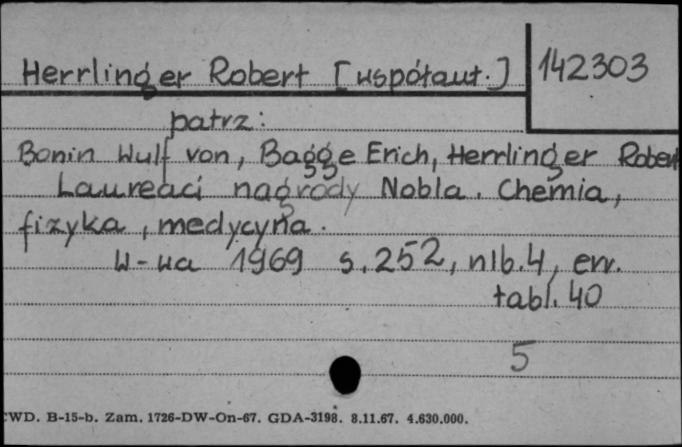 Herrlinger Robert [współaut.] 142303
patrz:
Bonin Wulf von, Bagge Erich, Herrlinger Robert
Laureaci nagrody Nobla. Chemia,
fizyka, medycyna.
W-wa 1969 s. 252, nlb. 4, err.
tabl. 40
5
WD. B-15-b. Zam. 1726-DW-On-67. GDA-3198. 8.11.67. 4.630.000.